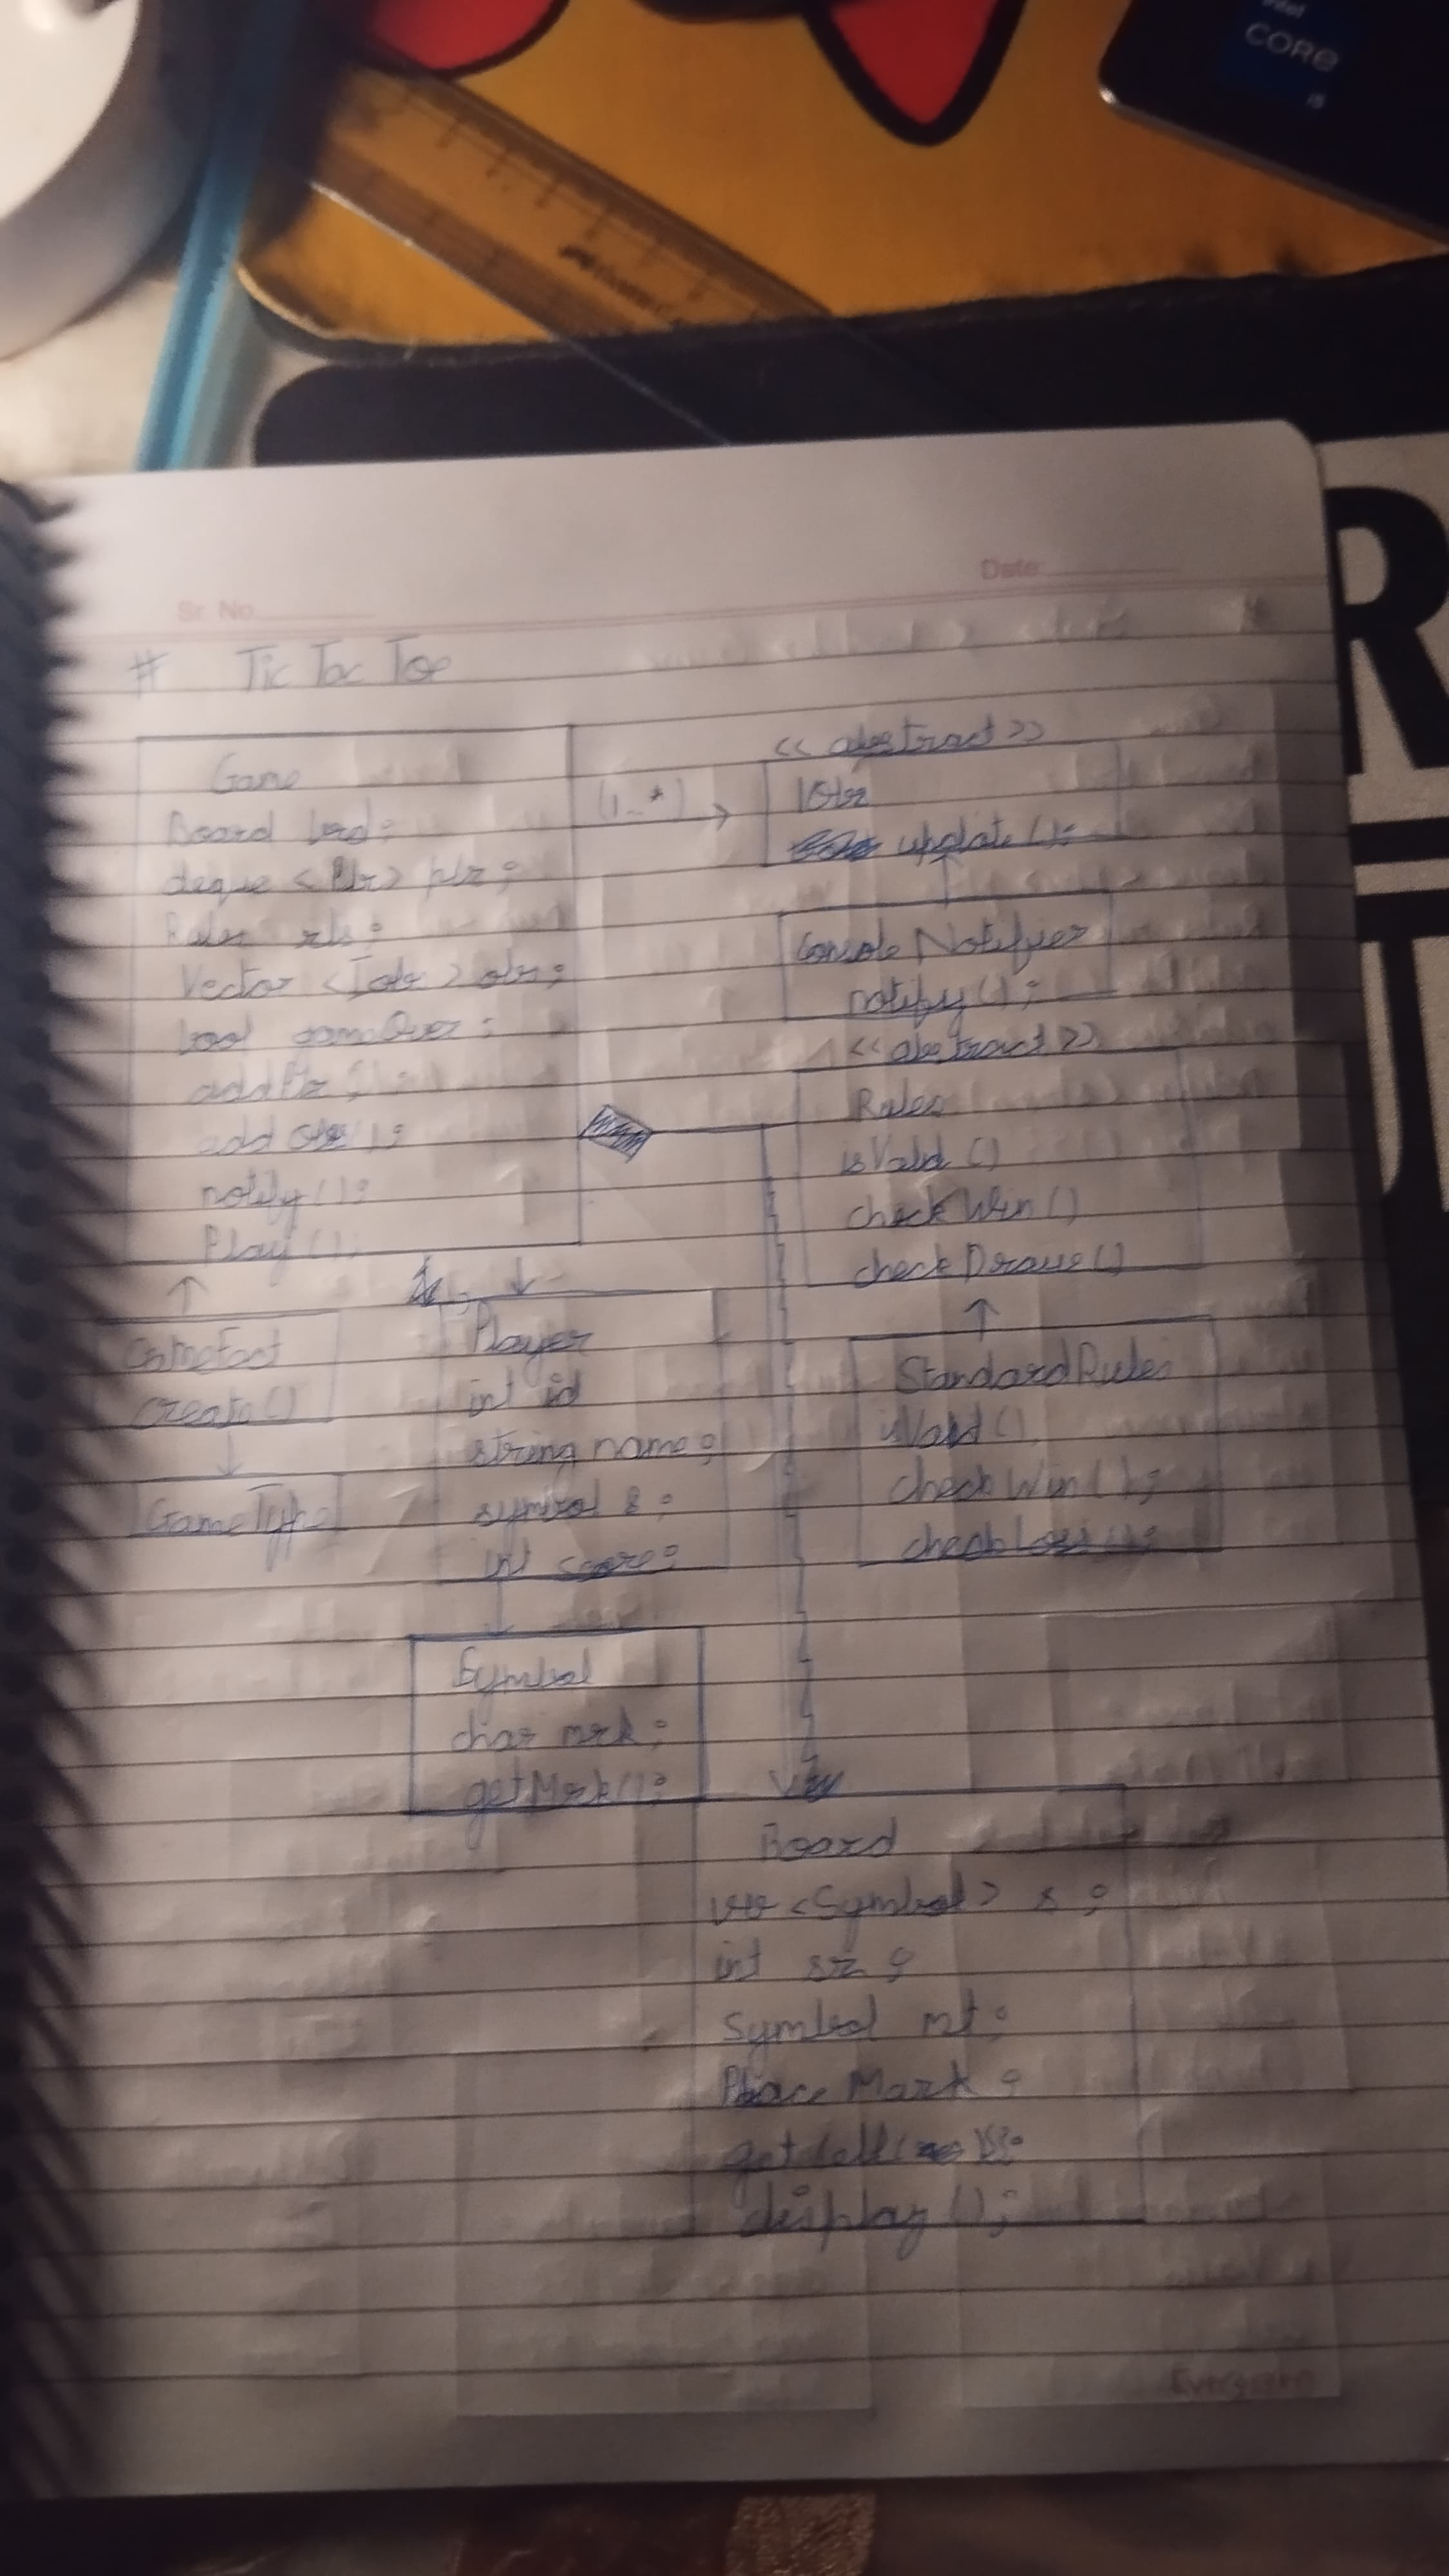 intel
CORE
i5
R
U
Sr. No.
Date:
# Tic Tac Toe
Game
Board brd;
deque <Plr> plr;
Rules rls;
Vector <Iobr> obr;
bool gameOver;
addPlr();
add Obr();
notify();
Play();
(1..*)
<< abstract >>
IObr
update();
Console Notifier
notify();
<< abstract >>
Rules
isValid ()
check Win ()
check Draw ()
StandardRules
isValid ()
check Win ();
Player
int id
string name;
symbol s;
int score;
create()
GameType
Symbol
char mrk;
getMrk();
Board
<Symbol> s;
int sz;
Symbol mt;
Place Mark;
get Cell
display ();
Evergreen